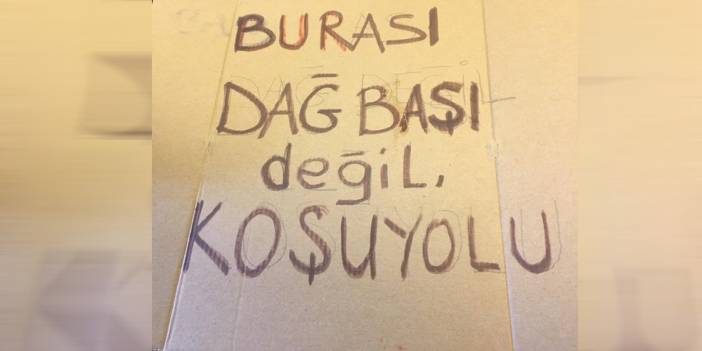 BURASI
DAĞ BAŞI
değiL,
KOŞUYOLU